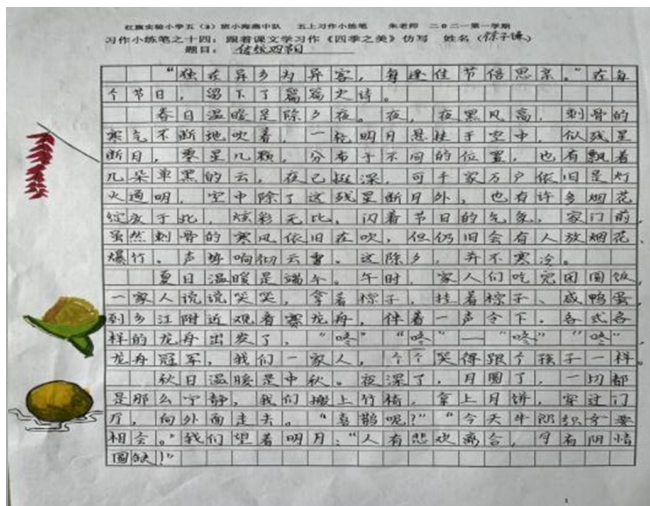 红旗实验小学五(3)班小海燕中队 五上习作小练笔 朱老师 二〇二一第一学期
习作小练笔之十四:跟着课文学习作《四季之美》仿写 姓名(徐子谦)
题目:传统四节日
“独在异乡为异客,每逢佳节倍思亲。”在每
个节日,留下了篇篇史诗。
春日温暖是除夕夜。夜,夜黑风高,刺骨的
寒气不断地吹着,一轮明月悬挂于空中,似残星
断月,寥星几颗,分布于不同的位置,也有飘着
几朵单黑的云,夜已挺深,可千家万户依旧是灯
火通明,空中除了这残星断月外,也有许多烟花
绽放于此,炫彩无比,闪着节日的气象,家门前,
虽然刺骨的寒风依旧在吹,但仍旧会有人放烟花、
爆竹。声势响彻云霄。这除夕,并不寒冷。
夏日温暖是端午。午时,家人们吃完团圆饭,
一家人说说笑笑,拿着粽子,挂着粽子、咸鸭蛋,
到乡江附近观看赛龙舟,伴着一声令下,各式各
样的龙舟出发了,“咚”“咚”——“咚”“咚”,
龙舟冠军,我们一家人,个个笑得跟个孩子一样。
秋日温暖是中秋。夜深了,月圆了,一切都
是那么宁静,我们搬上竹椅,拿上月饼,穿过门
厅,向外面走去。“喜鹊呢?”“今天牛郎织女要
相会。”我们望着明月:“人有悲欢离合,月有阴晴
圆缺!”
1